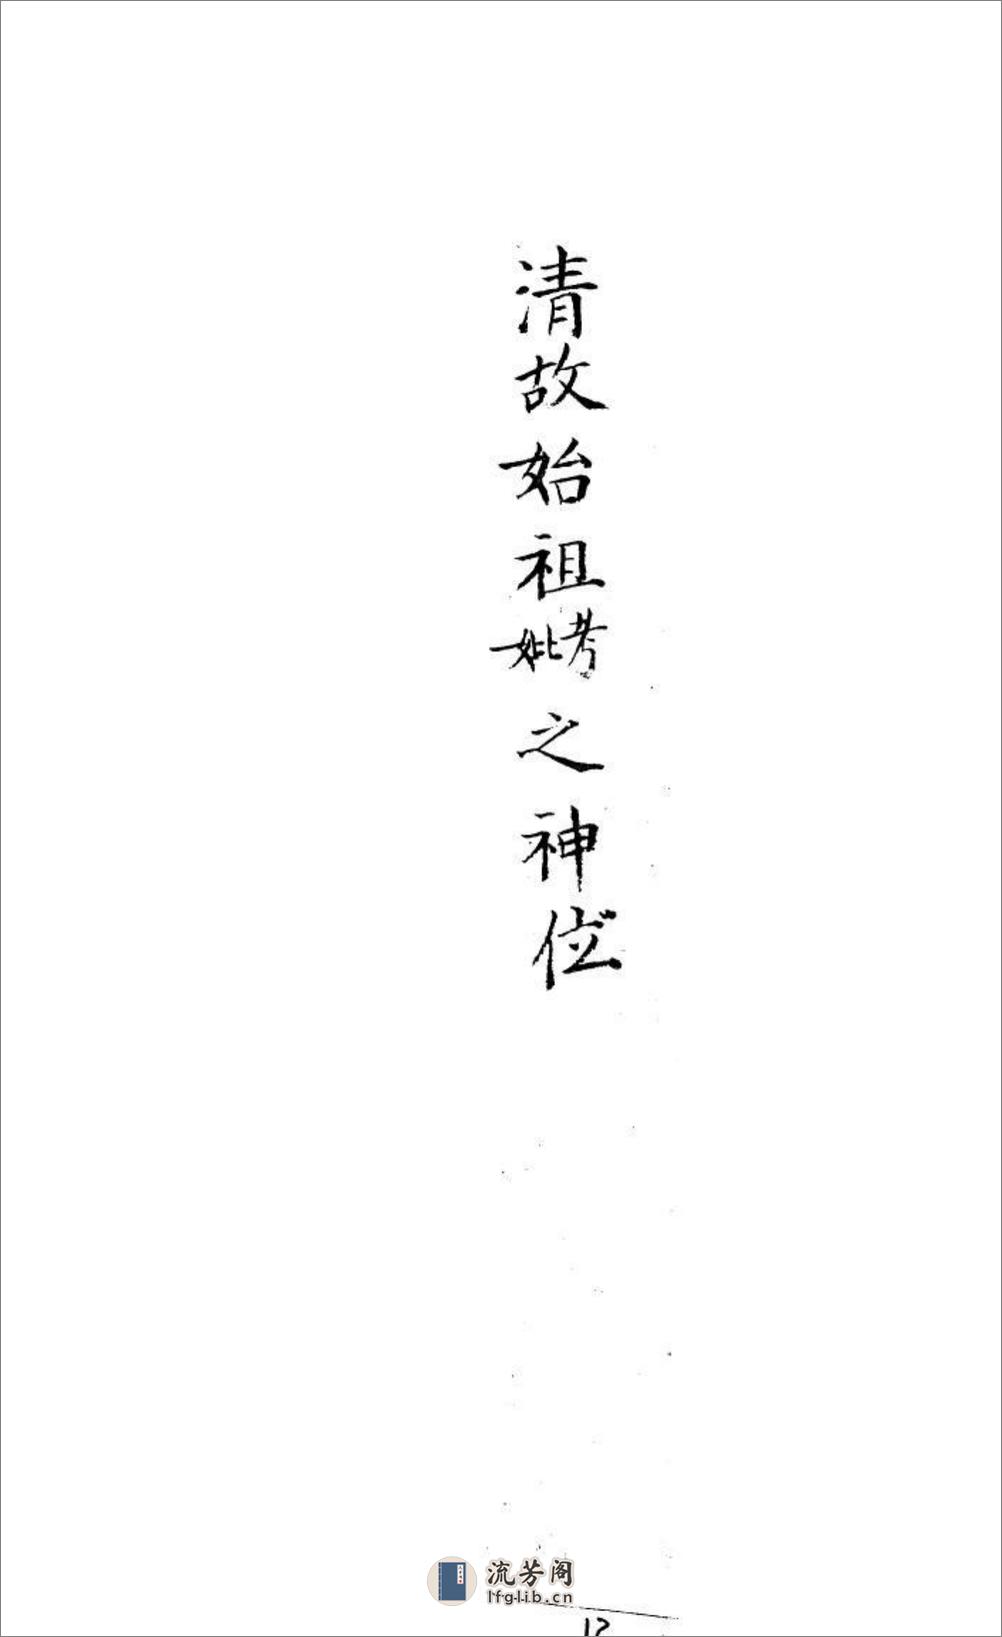 清故始祖考妣之神位
流芳阁
lfglib.cn
12